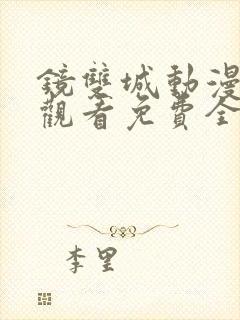 鏡雙城動漫
觀看免費全
李里